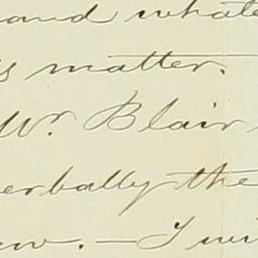 and whate
s matter.
Mr. Blair
erbally the
w. — I wi